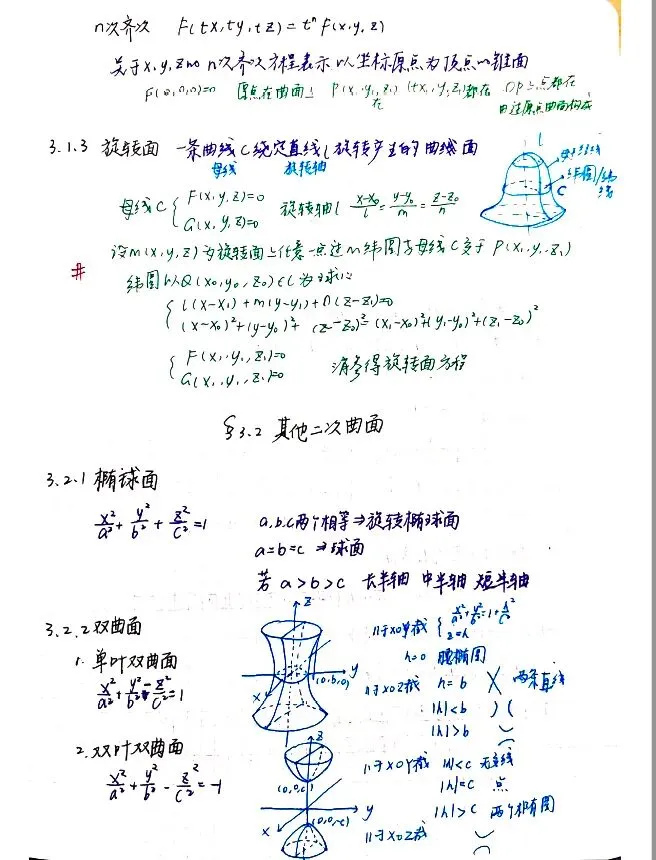 n次齐次 F(tx,ty,tz)=tⁿF(x,y,z)
关于x,y,z的n次齐次方程表示以坐标原点为顶点的锥面
F(0,0,0)=0 原点在曲面上 P(x,y,z)在 (tx,ty,tz)都在 OP上点都在
由过原点曲面构成
3.1.3 旋转面 一条曲线C绕定直线l旋转产生的曲面
母线 旋转轴
l
母线
纬圆/纬线
C
母线C { F(x,y,z)=0 旋转轴l (x-x₀)/l=(y-y₀)/m=(z-z₀)/n
G(x,y,z)=0
设M(x,y,z)为旋转面上任意一点 过M纬圆与母线C交于P(x₁,y₁,z₁)
# 纬圆以Q(x₀,y₀,z₀)∈l为球心
{ l(x-x₁)+m(y-y₁)+n(z-z₁)=0
(x-x₀)²+(y-y₀)²+(z-z₀)²=(x₁-x₀)²+(y₁-y₀)²+(z₁-z₀)²
{ F(x₁,y₁,z₁)=0
G(x₁,y₁,z₁)=0 消参得旋转面方程
§3.2 其他二次曲面
3.2.1 椭球面
x²/a²+y²/b²+z²/c²=1 a,b,c两个相等⇒旋转椭球面
a=b=c ⇒球面
若a>b>c 长半轴 中半轴 短半轴
3.2.2 双曲面
1. 单叶双曲面
x²/a²+y²/b²-z²/c²=1
z
y
x
(0,b,0)
//于xOy截 { x²/a²+y²/b²=1+h²/c²
z=h
h=0 腰椭圆
//于xOz截 h=b 两条直线
|h|<b
|h|>b
2. 双叶双曲面
x²/a²+y²/b²-z²/c²=-1
z
(0,0,c)
y
x
(0,0,-c)
//于xOy截 |h|<c 无交线
|h|=c 点
|h|>c 两个椭圆
//于xOz截